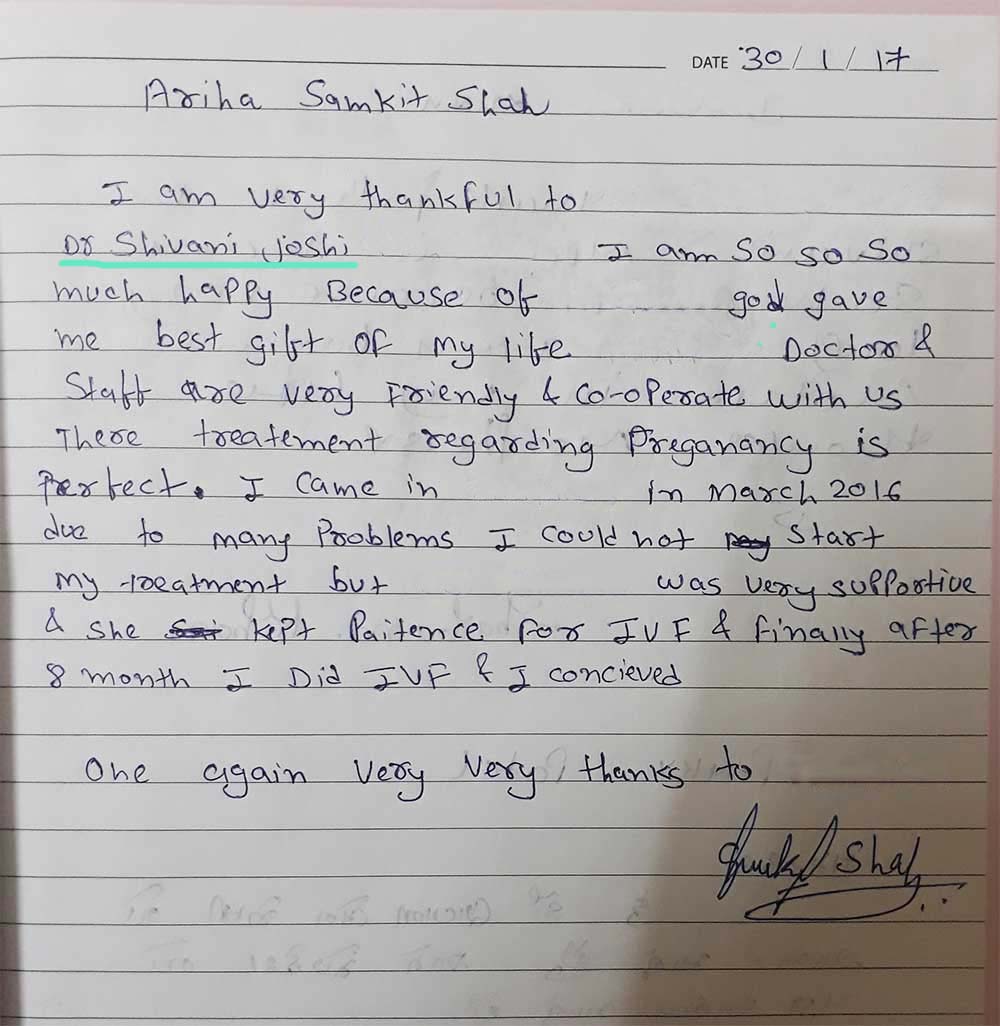 DATE 30/1/17
Ariha Samkit Shah
I am very thankful to
Dr Shivani Joshi I am so so so
much happy Because of god gave
me best gift of my life Doctor &
Staff are very Friendly & co-operate with us
There treatement regarding Preganancy is
Perfect. I came in in March 2016
due to many Problems I could not start
my treatment but was very supportive
& she kept Paitence for IVF & finally after
8 month I Did IVF & I concieved
One again very very thanks to
Shah